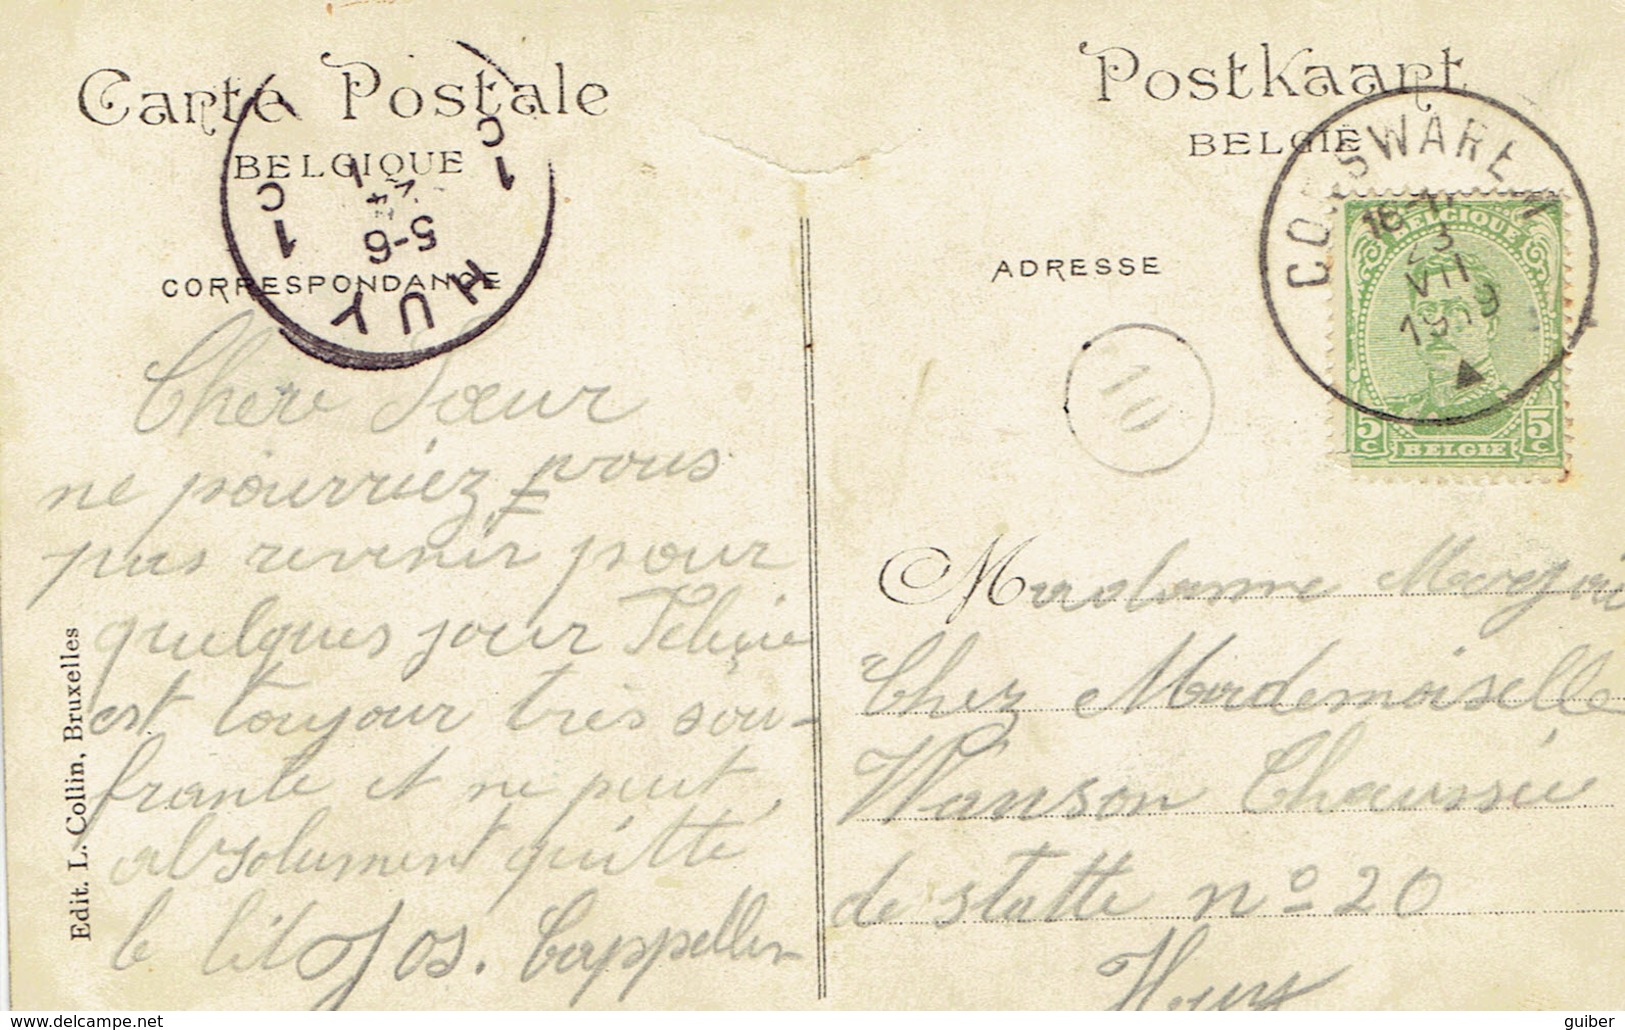 Carte Postale
BELGIQUE
CORRESPONDANCE
Chère Sœur
ne pourriez vous
pas revenir pour
quelques jour Féliçie
est toujour très sou-
frante et ne peut
absolument quitté
le lit Jos. Cappellen
Edit. L. Collin, Bruxelles
HUY
5-6
1C
1C
Postkaart
BELGIË
ADRESSE
10
CORSWAREM
16-17
23
VII
1919
BELGIQUE
5c
5c
BELGIE
Madame
Chez Mademoiselle
Wanson Chaussée
de statte nº 20
Huy
guiber